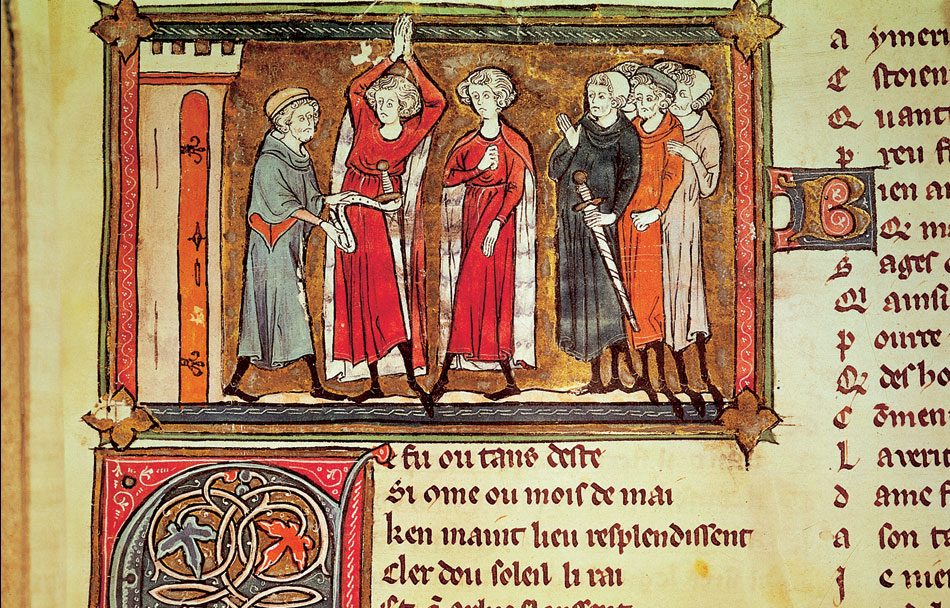 e fu ou tans deste
Si ome ou mois de mai
ken maint lieu resplendissent
Cler dou soleil li rai
a ymeri
E stoien
Q uant
p reu f
B ien a
Q
S ages
Q ainsi
p ourte
Q des ho
C õmen
L averit
d ame f
a son te
J e me